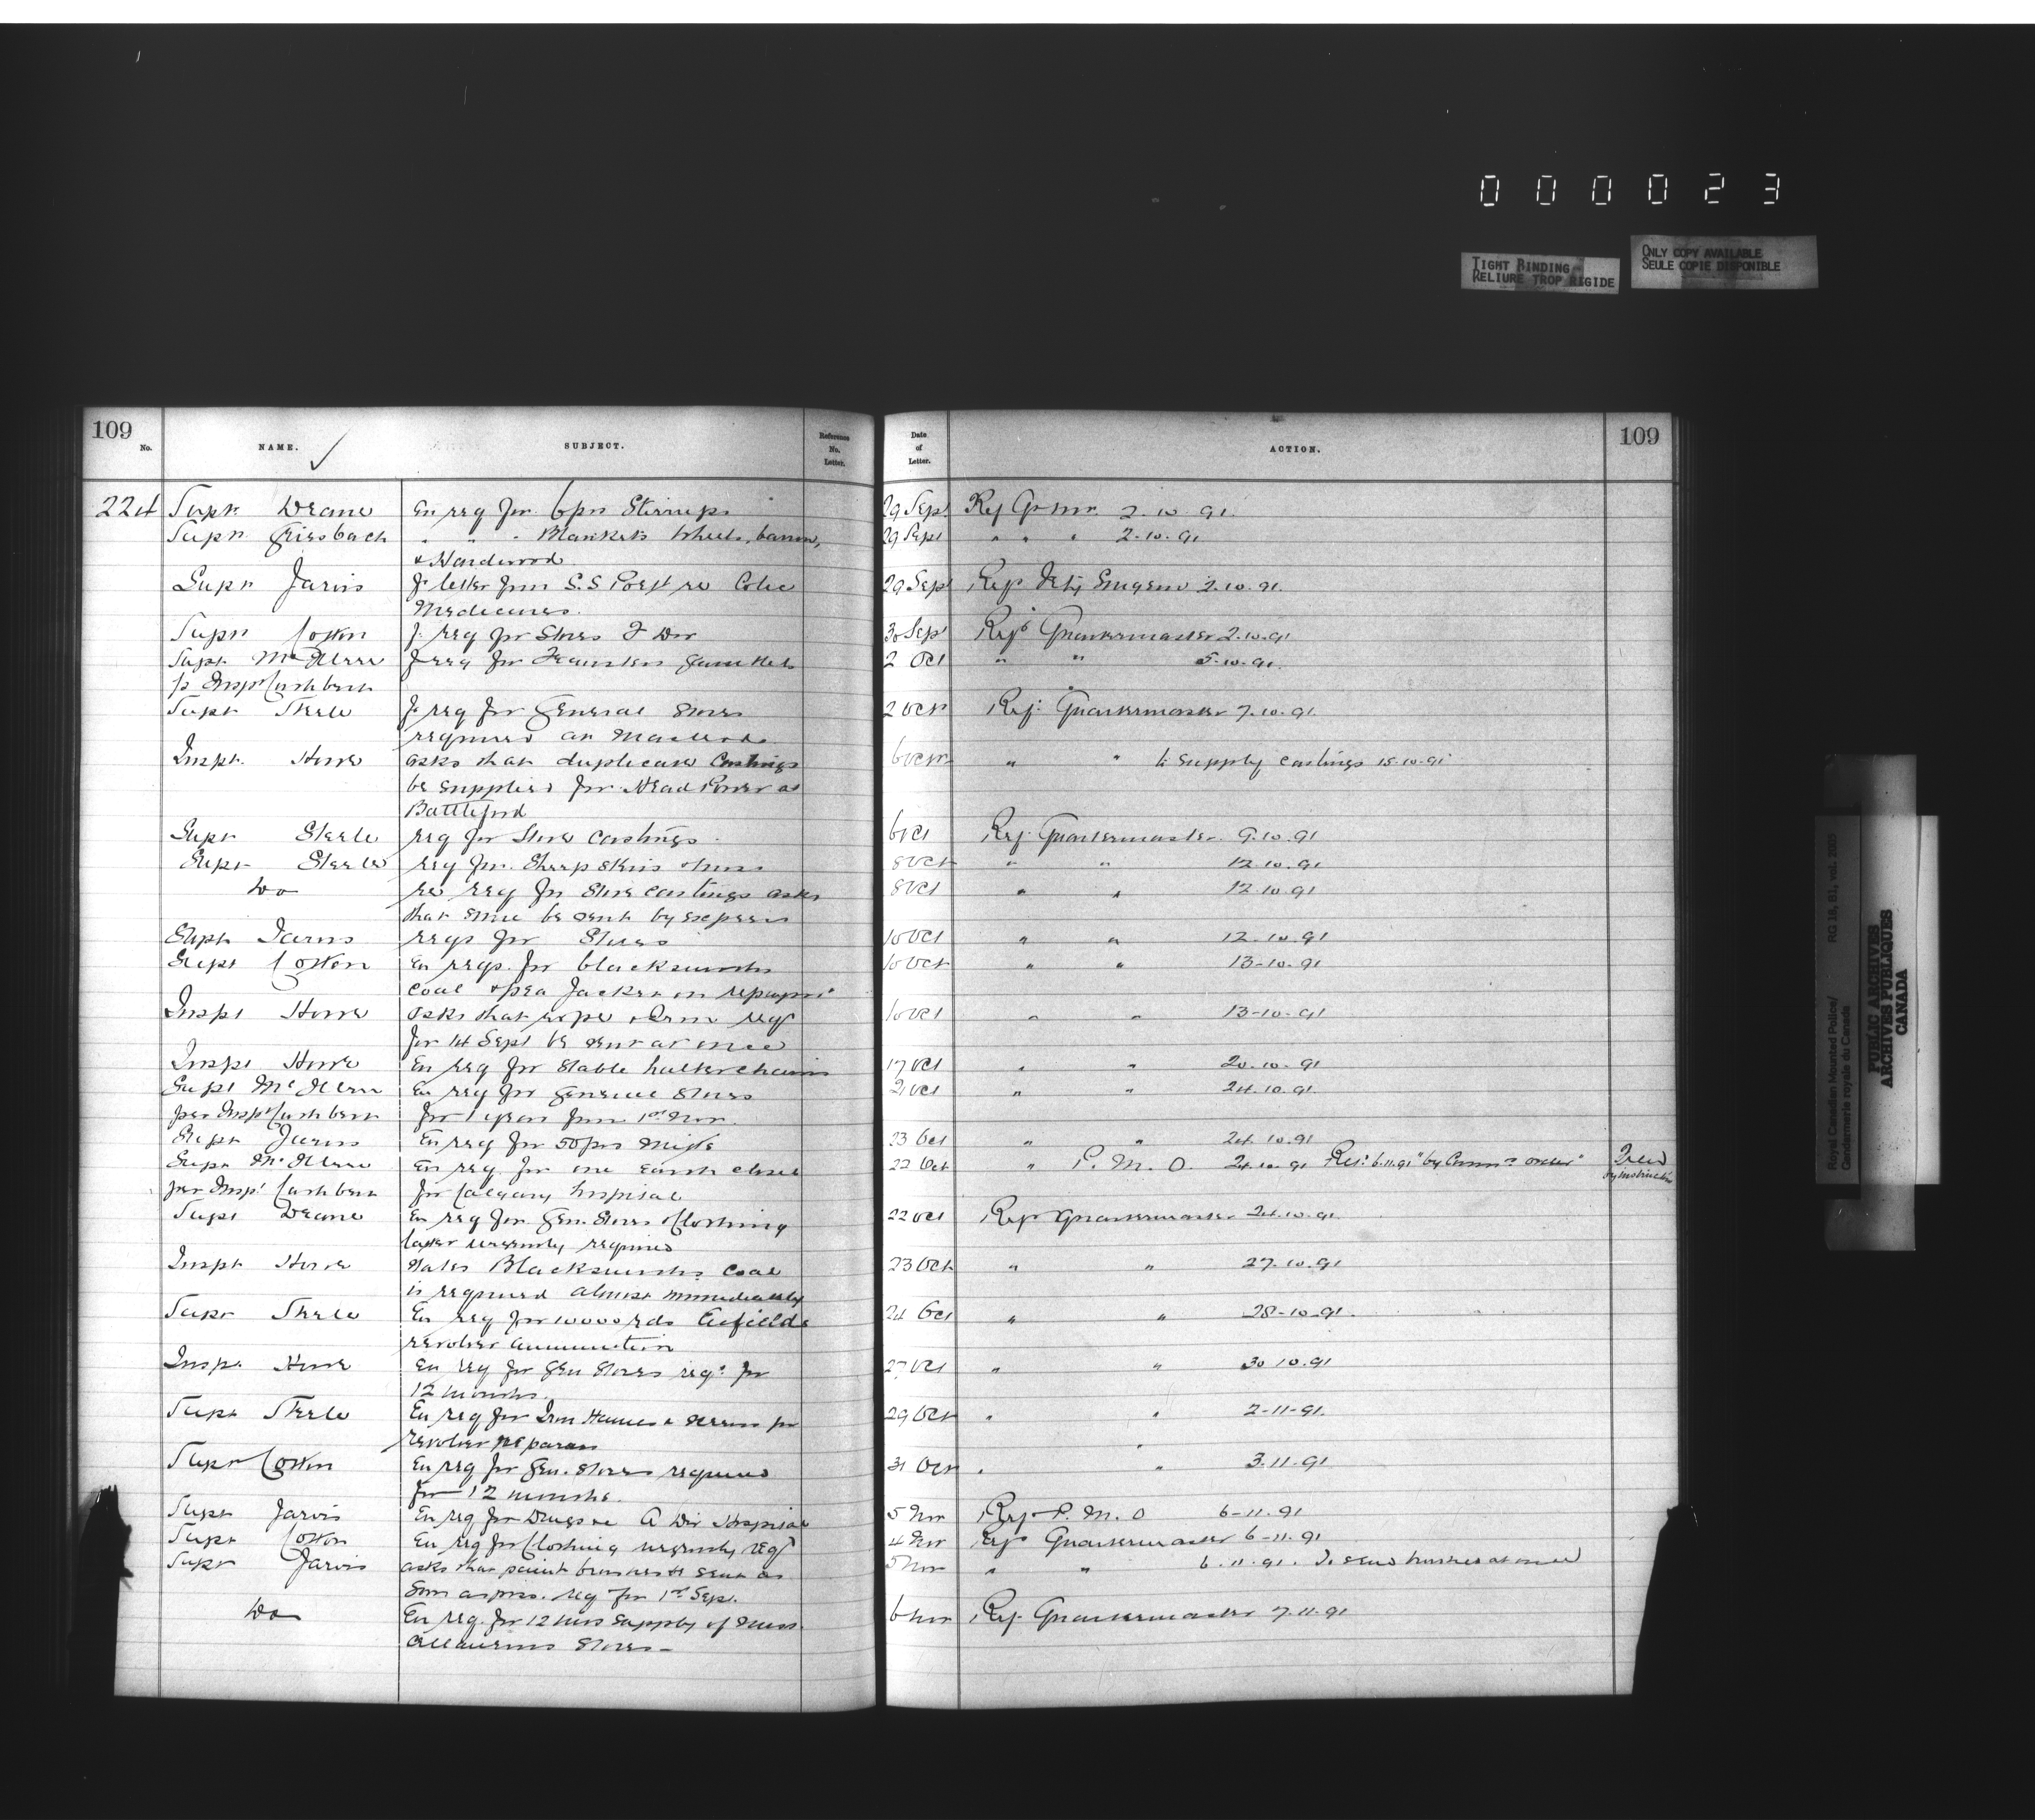 0 0 0 0 2 3
TIGHT BINDING
RELIURE TROP RIGIDE
ONLY COPY AVAILABLE
SEULE COPIE DISPONIBLE
109
No. NAME. SUBJECT. Reference No. Letter. Date of Letter. ACTION. 109
224 Supt Deane En req for 6 prs Stirrups 29 Sept Ref Qr Mr 2.10.91
Supt Griesbach " " " Blankets Wheel, barrow, 29 Sept " " " 2.10.91
& Hardwood
Supt Jarvis F. letter from S.S Port re Colic 29 Sept Ref Vety Surgeon 2.10.91.
Medicines.
Supt Cotton F. req for Stores F Div 30 Sept Ref Quartermaster 2.10.91
Supt McIllree F req for Teamsters Gauntlets 2 Oct " " 5.10.91.
p Insp Cuthbert
Supt Steele F. req for General Stores 2 Oct Ref: Quartermaster 7.10.91.
required at Macleod
Inspt Howe asks that duplicate Castings 6 Oct " " to supply castings 15.10.91
be supplied for Head Power at
Battleford
Supt Steele req for Stove Castings 6 Oct Ref: Quartermaster 9.10.91
Supt Steele req for Sheep Skins 8 Oct " " 12.10.91
Do re req for Stove Castings asks 8 Oct " " 12.10.91
that same be sent by express
Supt Jarvis reqs for Stores 10 Oct " " 12.10.91
Supt Cotton En reqs. for blacksmiths 10 Oct " " 13-10.91
coal & pea Jackets on repayt
Inspt Howe asks that rope & Iron req 10 Oct " " 13-10-91
for 1st Sept be sent at once
Inspt Howe En req for Stable halter chains 17 Oct " " 20.10.91
Supt McIllree En req for General Stores 21 Oct " " 24.10.91.
per Inspt Cuthbert for 1 year from 1st Nov.
Supt Jarvis En req for 50 prs Mitts 23 Oct " " 24.10.91
Supt McIllree En req. for one Earth closet 22 Oct " P. M. O. 24.10.91 Ret: 6.11.91 "by Commrs order"
per Inspt Cuthbert for Calgary hospital
Supt Deane En req for Gen. Stores & Clothing 22 Oct Ref Quartermaster 24.10.91.
latter urgently required
Inspt Howe States Blacksmiths Coal 23 Oct " " 27.10.91
is required almost immediately
Supt Steele En req for 10000 rds Enfield 24 Oct " " 28-10-91.
revolver ammunition
Inspt Howe En req for Gen Stores reqd for 27 Oct " " 30.10.91
12 months.
Supt Steele En req for Iron Hames & screws for 29 Oct " " 2-11-91.
revolver repairs
Supt Cotton En req for Gen. Stores required 31 Oct " " 3.11.91
for 12 months.
Supt Jarvis En req for Drugs re A Div Hospital 5 Nov Ref P. M. O 6-11.91
Supt Cotton En req for Clothing urgently req 4 Nov Ref Quartermaster 6-11.91
Supt Jarvis asks that paint brushes be sent as 5 Nov " " 6.11.91. To send brushes at once
soon as poss. req for 1st Sep.
Do En req. for 12 mos supply of Misc- 6 Nov Ref. Quartermaster 7.11.91
ellaneous Stores-
Royal Canadian Mounted Police/ RG 18, B1, vol. 2005
Gendarmerie royale du Canada
PUBLIC ARCHIVES
ARCHIVES PUBLIQUES
CANADA